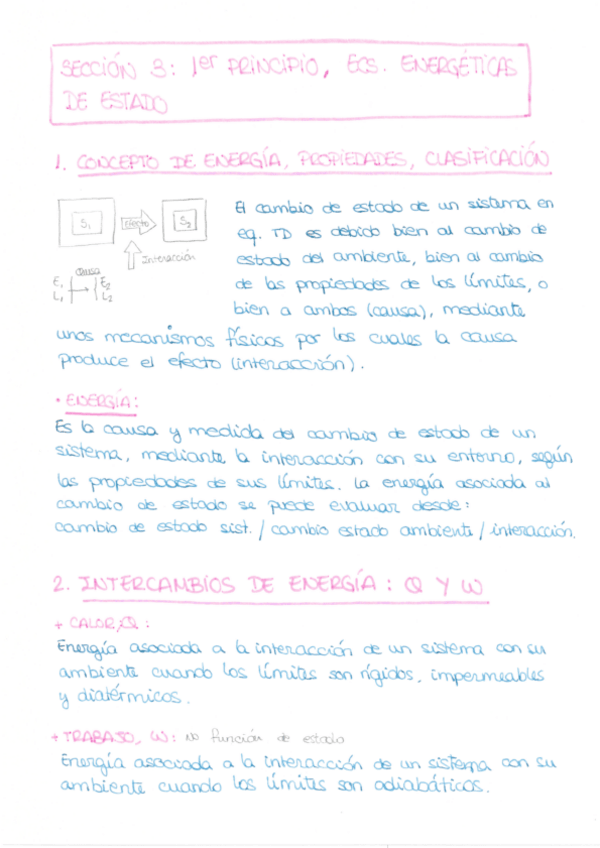 SECCIÓN 3: 1er PRINCIPIO, ECS. ENERGÉTICAS
DE ESTADO
1. CONCEPTO DE ENERGÍA, PROPIEDADES, CLASIFICACIÓN
S1 Efecto S2
Interacción
causa
E1 E2
L1 L2
El cambio de estado de un sistema en
eq. TD es debido bien al cambio de
estado del ambiente, bien al cambio
de las propiedades de los límites, o
bien a ambos (causa), mediante
unos mecanismos físicos por los cuales la causa
produce el efecto (interacción).
• ENERGÍA:
Es la causa y medida del cambio de estado de un
sistema, mediante la interacción con su entorno, según
las propiedades de sus límites. La energía asociada al
cambio de estado se puede evaluar desde:
cambio de estado sist. / cambio estado ambiente / interacción.
2. INTERCAMBIOS DE ENERGÍA: Q Y W
+ CALOR, Q:
Energía asociada a la interacción de un sistema con su
ambiente cuando los límites son rígidos, impermeables
y diatérmicos.
+ TRABAJO, W: no función de estado
Energía asociada a la interacción de un sistema con su
ambiente cuando los límites son adiabáticos.